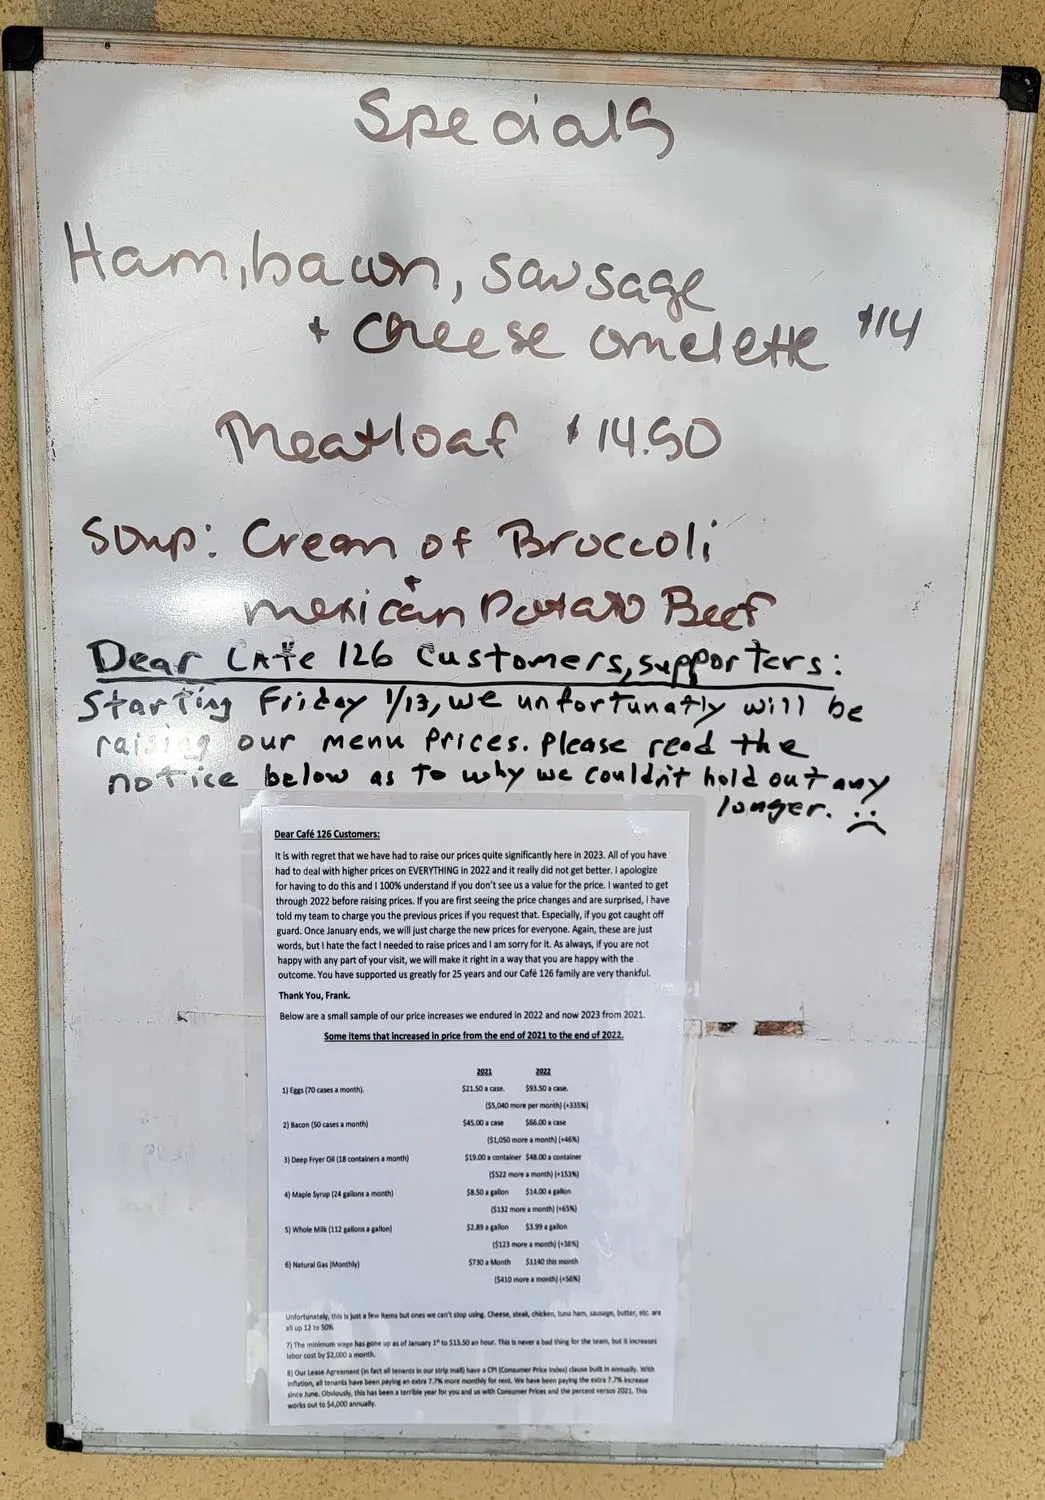 Specials
Ham, bacon, sausage
+ cheese omelette $14
Meatloaf $14.50
Soup: Cream of Broccoli
+
mexican Potato Beef
Dear CAfe 126 Customers, supporters:
Starting Friday 1/13, we unfortunatly will be
raising our menu Prices. Please read the
notice below as to why we couldn't hold out any
longer. :(
Dear Café 126 Customers:
It is with regret that we have had to raise our prices quite significantly here in 2023. All of you have
had to deal with higher prices on EVERYTHING in 2022 and it really did not get better. I apologize
for having to do this and I 100% understand if you don't see us a value for the price. I wanted to get
through 2022 before raising prices. If you are first seeing the price changes and are surprised, I have
told my team to charge you the previous prices if you request that. Especially, if you got caught off
guard. Once January ends, we will just charge the new prices for everyone. Again, these are just
words, but I hate the fact I needed to raise prices and I am sorry for it. As always, if you are not
happy with any part of your visit, we will make it right in a way that you are happy with the
outcome. You have supported us greatly for 25 years and our Café 126 family are very thankful.
Thank You, Frank.
Below are a small sample of our price increases we endured in 2022 and now 2023 from 2021.
Some Items that increased in price from the end of 2021 to the end of 2022.
2021 2022
1) Eggs (70 cases a month). $21.50 a case. $93.50 a case.
($5,040 more per month) (+335%)
2) Bacon (50 cases a month) $45.00 a case $66.00 a case
($1,050 more a month) (+46%)
3) Deep Fryer Oil (18 containers a month) $19.00 a container $48.00 a container
($522 more a month) (+153%)
4) Maple Syrup (24 gallons a month) $8.50 a gallon $14.00 a gallon
($132 more a month) (+65%)
5) Whole Milk (112 gallons a gallon) $2.89 a gallon $3.99 a gallon
($123 more a month) (+38%)
6) Natural Gas (Monthly) $730 a Month $1140 this month
($410 more a month) (+56%)
Unfortunately, this is just a few items but ones we can't stop using. Cheese, steak, chicken, tuna ham, sausage, butter, etc. are
all up 12 to 50%
7) The minimum wage has gone up as of January 1st to $15.50 an hour. This is never a bad thing for the team, but it increases
labor cost by $2,000 a month.
8) Our Lease Agreement (in fact all tenants in our strip mall) have a CPI (Consumer Price Index) clause built in annually. With
inflation, all tenants have been paying an extra 7.7% more monthly for rent. We have been paying the extra 7.7% increase
since June. Obviously, this has been a terrible year for you and us with Consumer Prices and the percent versus 2021. This
works out to $4,000 annually.